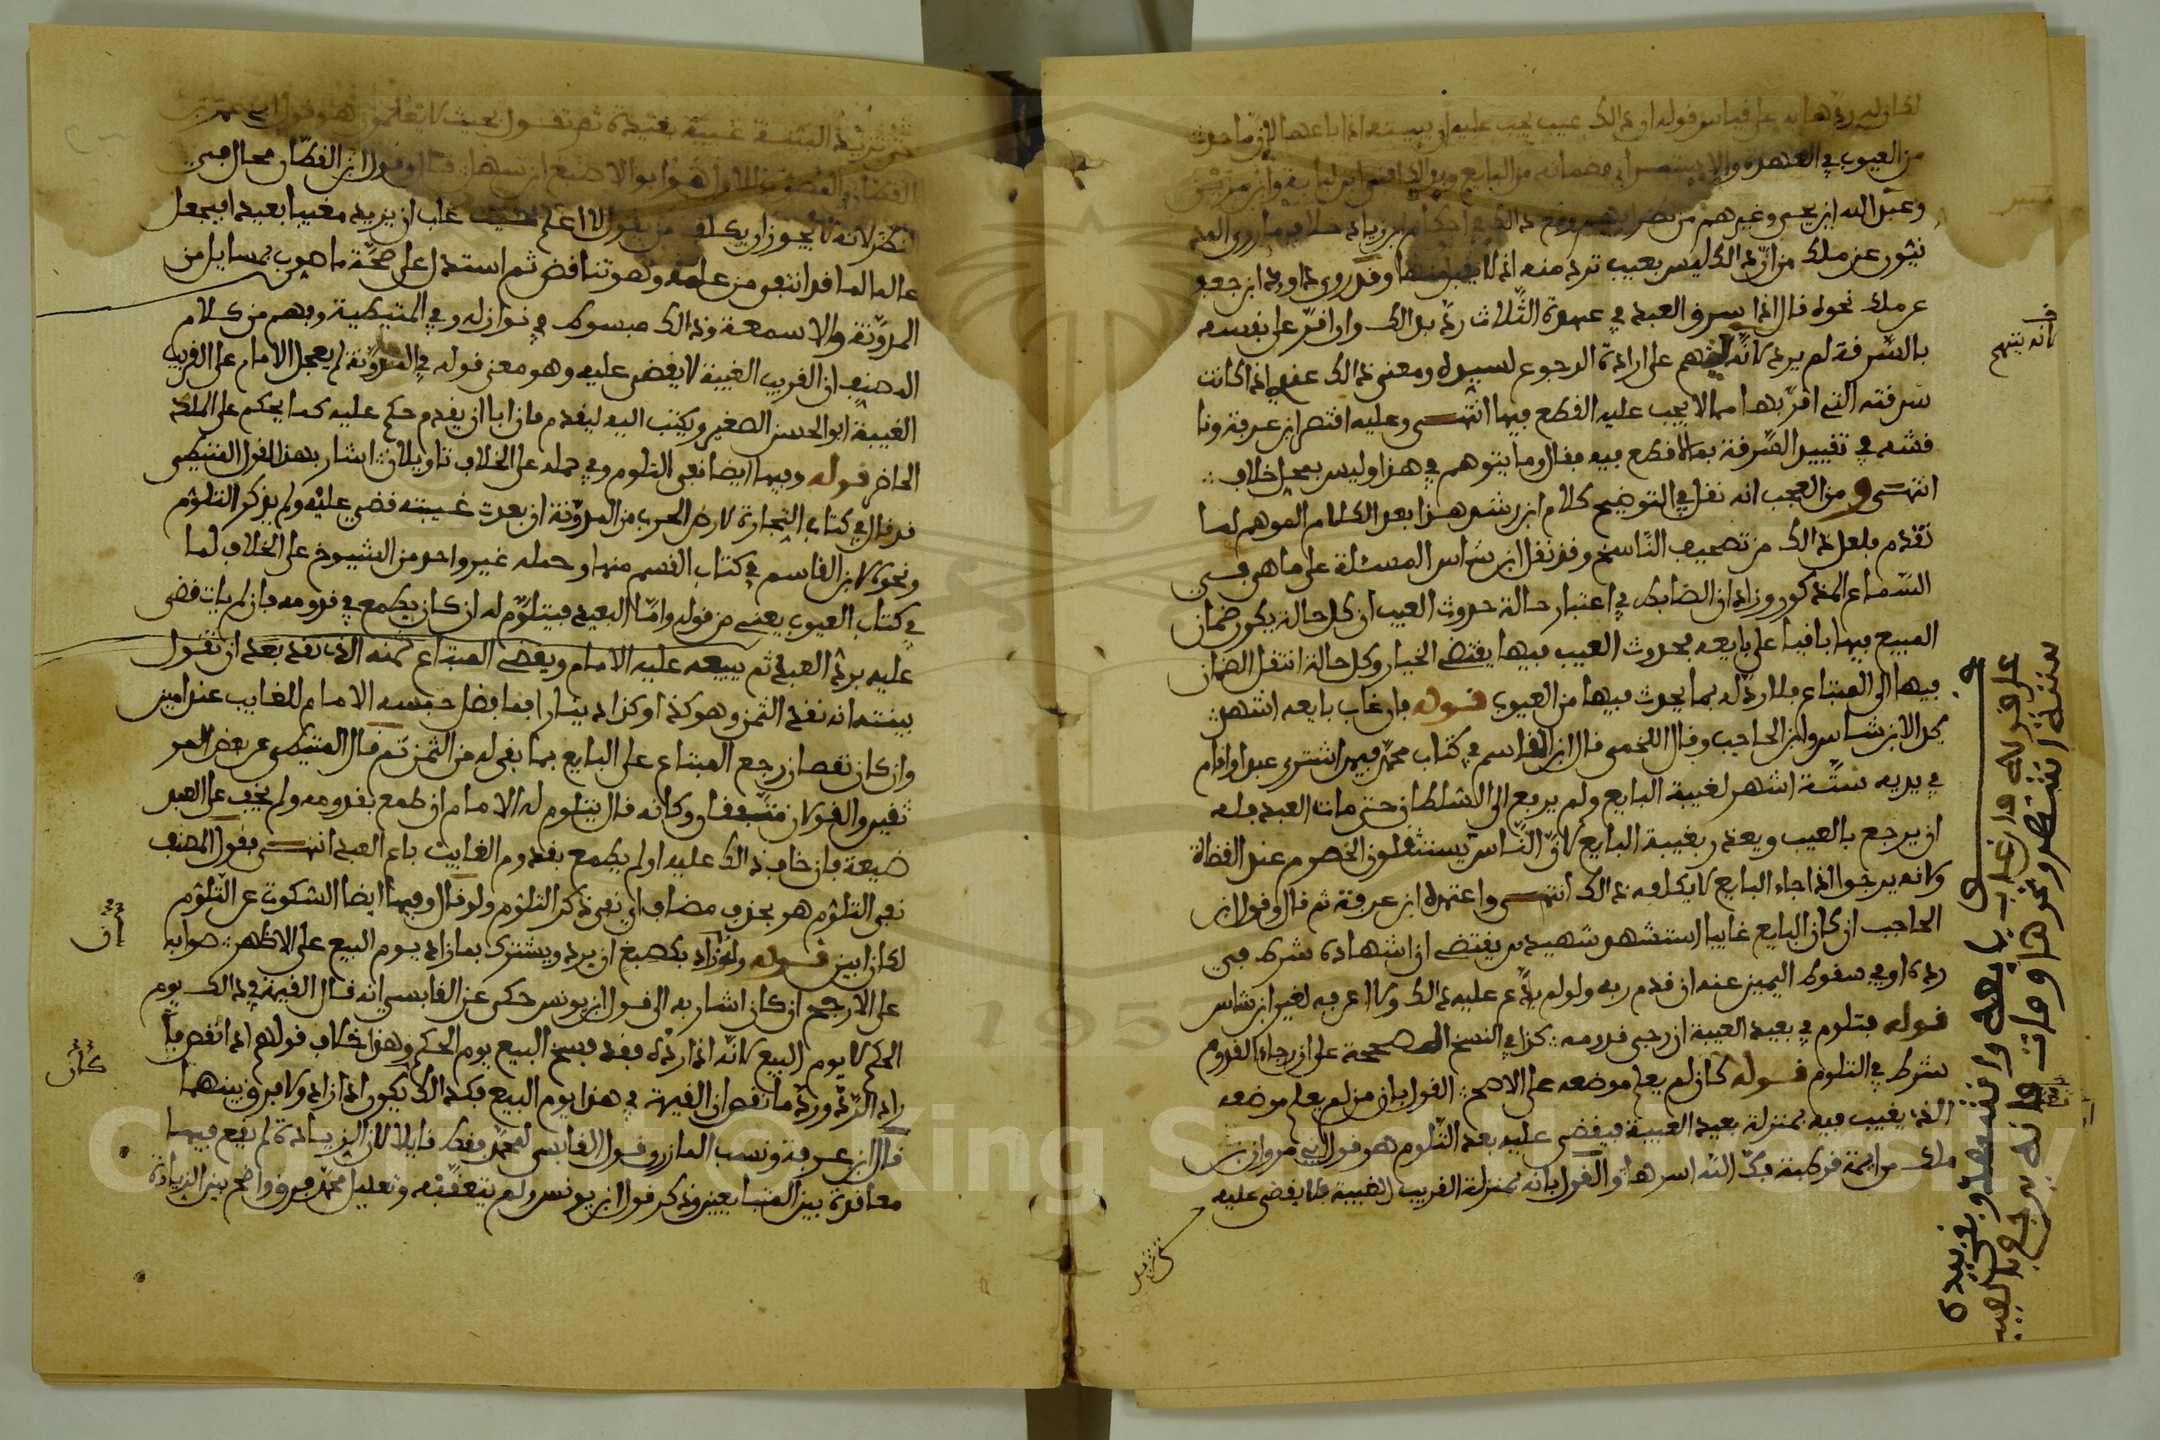 لكان له ردها به على قياس قوله او ذالك عيب يجب عليه ان يبينه اذا باعها لان ما حدث
من العيوب في العهدة والاستبراء ضمانه من البايع
وعبد الله ابن يحيى وغيرهم من نظرايهم ووقع ذالك في احكام ابن زياد خلاف ما روى المد
نيون عن ملك من ان ذالك ليس بعيب ترد منه اذ لا يقبل منها وقد روى داود ابن جعفر
عن ملك نحوه قال اذا سرق العبد في عهدة الثلاث رد بذالك واو اقر على نفسه
بالسرقة لم يرد لانه يتهم على ارادة الرجوع لسيده ومعنى ذالك عندي اذا كانت
سرقته التي اقر بها مما لا يجب عليه القطع فيها انتهى وعليه اقتصر ابن عرفة ونا
قشه في تقييد السرقة بما لا قطع فيه فقال وما يتوهم في هذا وليس بمحل خلاف
انتهى ومن العجب انه نقل في التوضيح كلام ابن رشد هذا بعد الكلام الموهم لما
تقدم فلعل ذالك من تصحيف الناسخ وقد نقل ابن شاس المسئلة على ما هي في
السماع المذكور وزاد ان الضابط في اعتبار حالة حدوث العيب ان كل حالة يكون ضمان
المبيع فيها باقيا على بايعه فحدوث العيب فيها يقتضي الخيار وكل حالة انتقل الضمان
فيها الى المبتاع فلا رد له بما يحدث فيها من العيوب قوله فان غاب بايعه اشهد
كل الابن شاس وابن الحاجب وقال اللخمي قال ابن القاسم في كتاب محمد فيمن اشترى عبدا واقام
في يديه ستة اشهر لغيبة البايع ولم يرفع الى السلطان حتى مات العبد فله
ان يرجع بالعيب ويعذر بغيبة البايع لان الناس يستثقلون الخصوم عند القضاة
ولانه يرجوا اذا جاء البايع لا يكلفه ذالك انتهى واعتمده ابن عرفة ثم قال وقول ابن
الحاجب ان كان البايع غايبا استشهد شهيدين يقتضي ان شهادة شرط في
رده او في سقوط اليمين عنه ان قدم ربه ولو لم يدع عليه ذالك ولا اعرفه لغير ابن شاس
قوله فتلوم في بعيد الغيبة ان رجي قدومه كذا في النسخ الصحيحة على ان رجاء القدوم
شرط في التلوم قوله كان لم يعلم موضعه على الاصح القول بان من لم يعلم موضعه
الذي يغيب فيه بمنزلة بعيد الغيبة فيقضى عليه بعد التلوم هو قول ابي مروان بن
ملك من ايمة قرطبة فك الله اسرها والقول بانه بمنزلة القريب الغيبة فلا يقضى عليه
لانه يتهم
على قوله وان غاب بايعه وانتقصه وبقي بيده
ستة اشهر ونحوها ومات فانه يرجع بالعيب
حتى تثبت البينة غيبة بعيدة ثم تقول بحيث لا يعلمون هو قول ابي عمر بن
القطان والقصوب للاول هو ابو الاصبغ ابن سهل قال وقول ابن القطان محال في
النظر لانه لا يجوز ان يكلف من يقول لا اعلم حيث غاب ان يزيد مغيبا بعيدا فيجعل
عالما لما قد انتفى من علمه وهو تناقض ثم استدل على صحة ما هو به بمسايل من
المدونة والاسمعة وذالك مبسوط في نوازله وفي المتيطية وفهم من كلام
المصنف ان القريب الغيبة لا يقضى عليه وهو معنى قوله في المدونة لم يعجل الامام على القريب
الغيبة ابو الحسن الصغير ويكتب اليه ليقدم فان ابا ان يقدم حكم عليه كما يحكم على الملد
الحاضر قوله وفيها ايضا نفى التلوم وفي حمله على الخلاف تاويلان اشار بهذا لقول المتيطي
قد قال في كتاب التجارة لارض الحرب من المدونة ان بعدت غيبته قضي عليه ولم يذكر التلوم
ونحوه لابن القاسم في كتاب القسم منها وحمله غير واحد من الشيوخ على الخلاف لما
في كتاب العيوب يعني من قوله واما البعيد فيتلوم له ان كان يطمع في قدومه فان لم يات قضى
عليه برد العبد ثم يبيعه عليه الامام ويقضي المبتاع ثمنه الذي نقد بعد ان تقول
بينته انه نقد الثمن وهو كذا وكذا دينارا فما فضل حبسه الامام للغايب عند امين
وان كان نقصان رجع المبتاع على البايع بما بقي له من الثمن ثم قال المتيطي عن بعض المو
ثقين والقولان متفقان وكانه قال يتلوم له الامام ان طمع بقدومه ولم يخف على العبد
ضيعة فان خاف ذالك عليه او لم يطمع بقدوم الغايب باع العبد انتهى فقول المصنف
نفى التلوم هو بحذف مضاف اي نفى ذكر التلوم ولو قال وفيها ايضا السكوت عن التلوم
لكان ابين قوله وان زاد بكصبغ ان يرد ويشترك بما زاد يوم البيع على الاظهر صوابه
على الارجح ان كان اشار به الى قول ابن يونس حكى عن القابسي انه قال القيمة في ذالك يوم
الحكم لا يوم البيع لانه اذا رده فقد فسخ البيع يوم الحكم وهذا بخلاف قولهم اذا نقص فيا
راد الرد ورد ما نقص ان القيمة في هذا يوم البيع فكذالك يكون اذا زاد ولا فرق بينهما
قال ابن عرفة ونسب المازري قول القابسي لمحمد فقط قايلا لان الزيادة لم تقع فيها
معاقدة بين المتبايعين وذكر قول ابن يونس ولم يتعقبه وتعليل محمد فرق واضح بين الزيادة